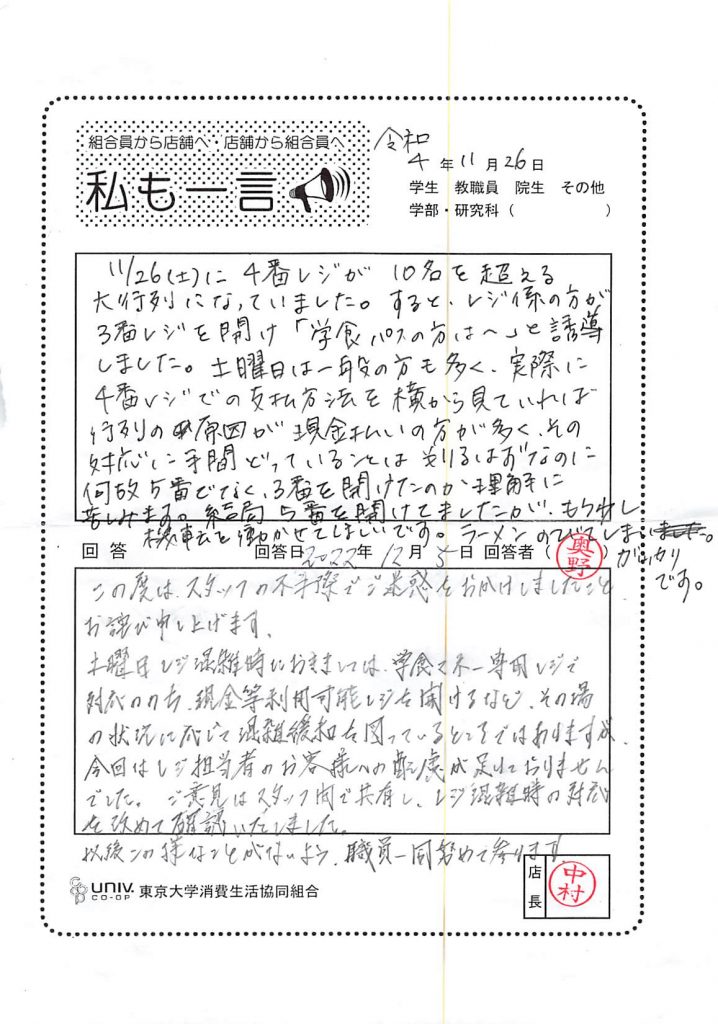 組合員から店舗へ・店舗から組合員へ
私も一言
令和
4年11月26日
学生 教職員 院生 その他
学部・研究科( )
11/26(土)に4番レジが10名を超える
大行列になっていました。すると、レジ係の方が
3番レジを開け「学食パスの方は〜」と誘導
しました。土曜日は一般の方も多く、実際に
4番レジでの支払方法を横から見ていれば
行列の原因が現金払いの方が多く、その
対応に手間どっていることは判るはずなのに
何故5番でなく、3番を開けたのか理解に
苦しみます。結局5番を開けてましたが、もう少し
機転を働かせてほしいです。ラーメンのびてしまい
がっかり
です。
回答 回答日2022年12月5日 回答者(奥野)
この度は、スタッフの不手際でご迷惑をおかけしましたこと
お詫び申し上げます。
土曜日レジ混雑時におきましては、学食マネー専用レジで
対応ののち、現金等利用可能レジを開けるなど、その場
の状況に応じて混雑緩和を図っているところではありますが、
今回はレジ担当者のお客様への配慮が足りておりません
でした。ご意見はスタッフ間で共有し、レジ混雑時の対応
を改めて確認いたしました。
以後この様なことがないよう、職員一同努めて参ります。
店長 中村
UNIV. CO-OP 東京大学消費生活協同組合